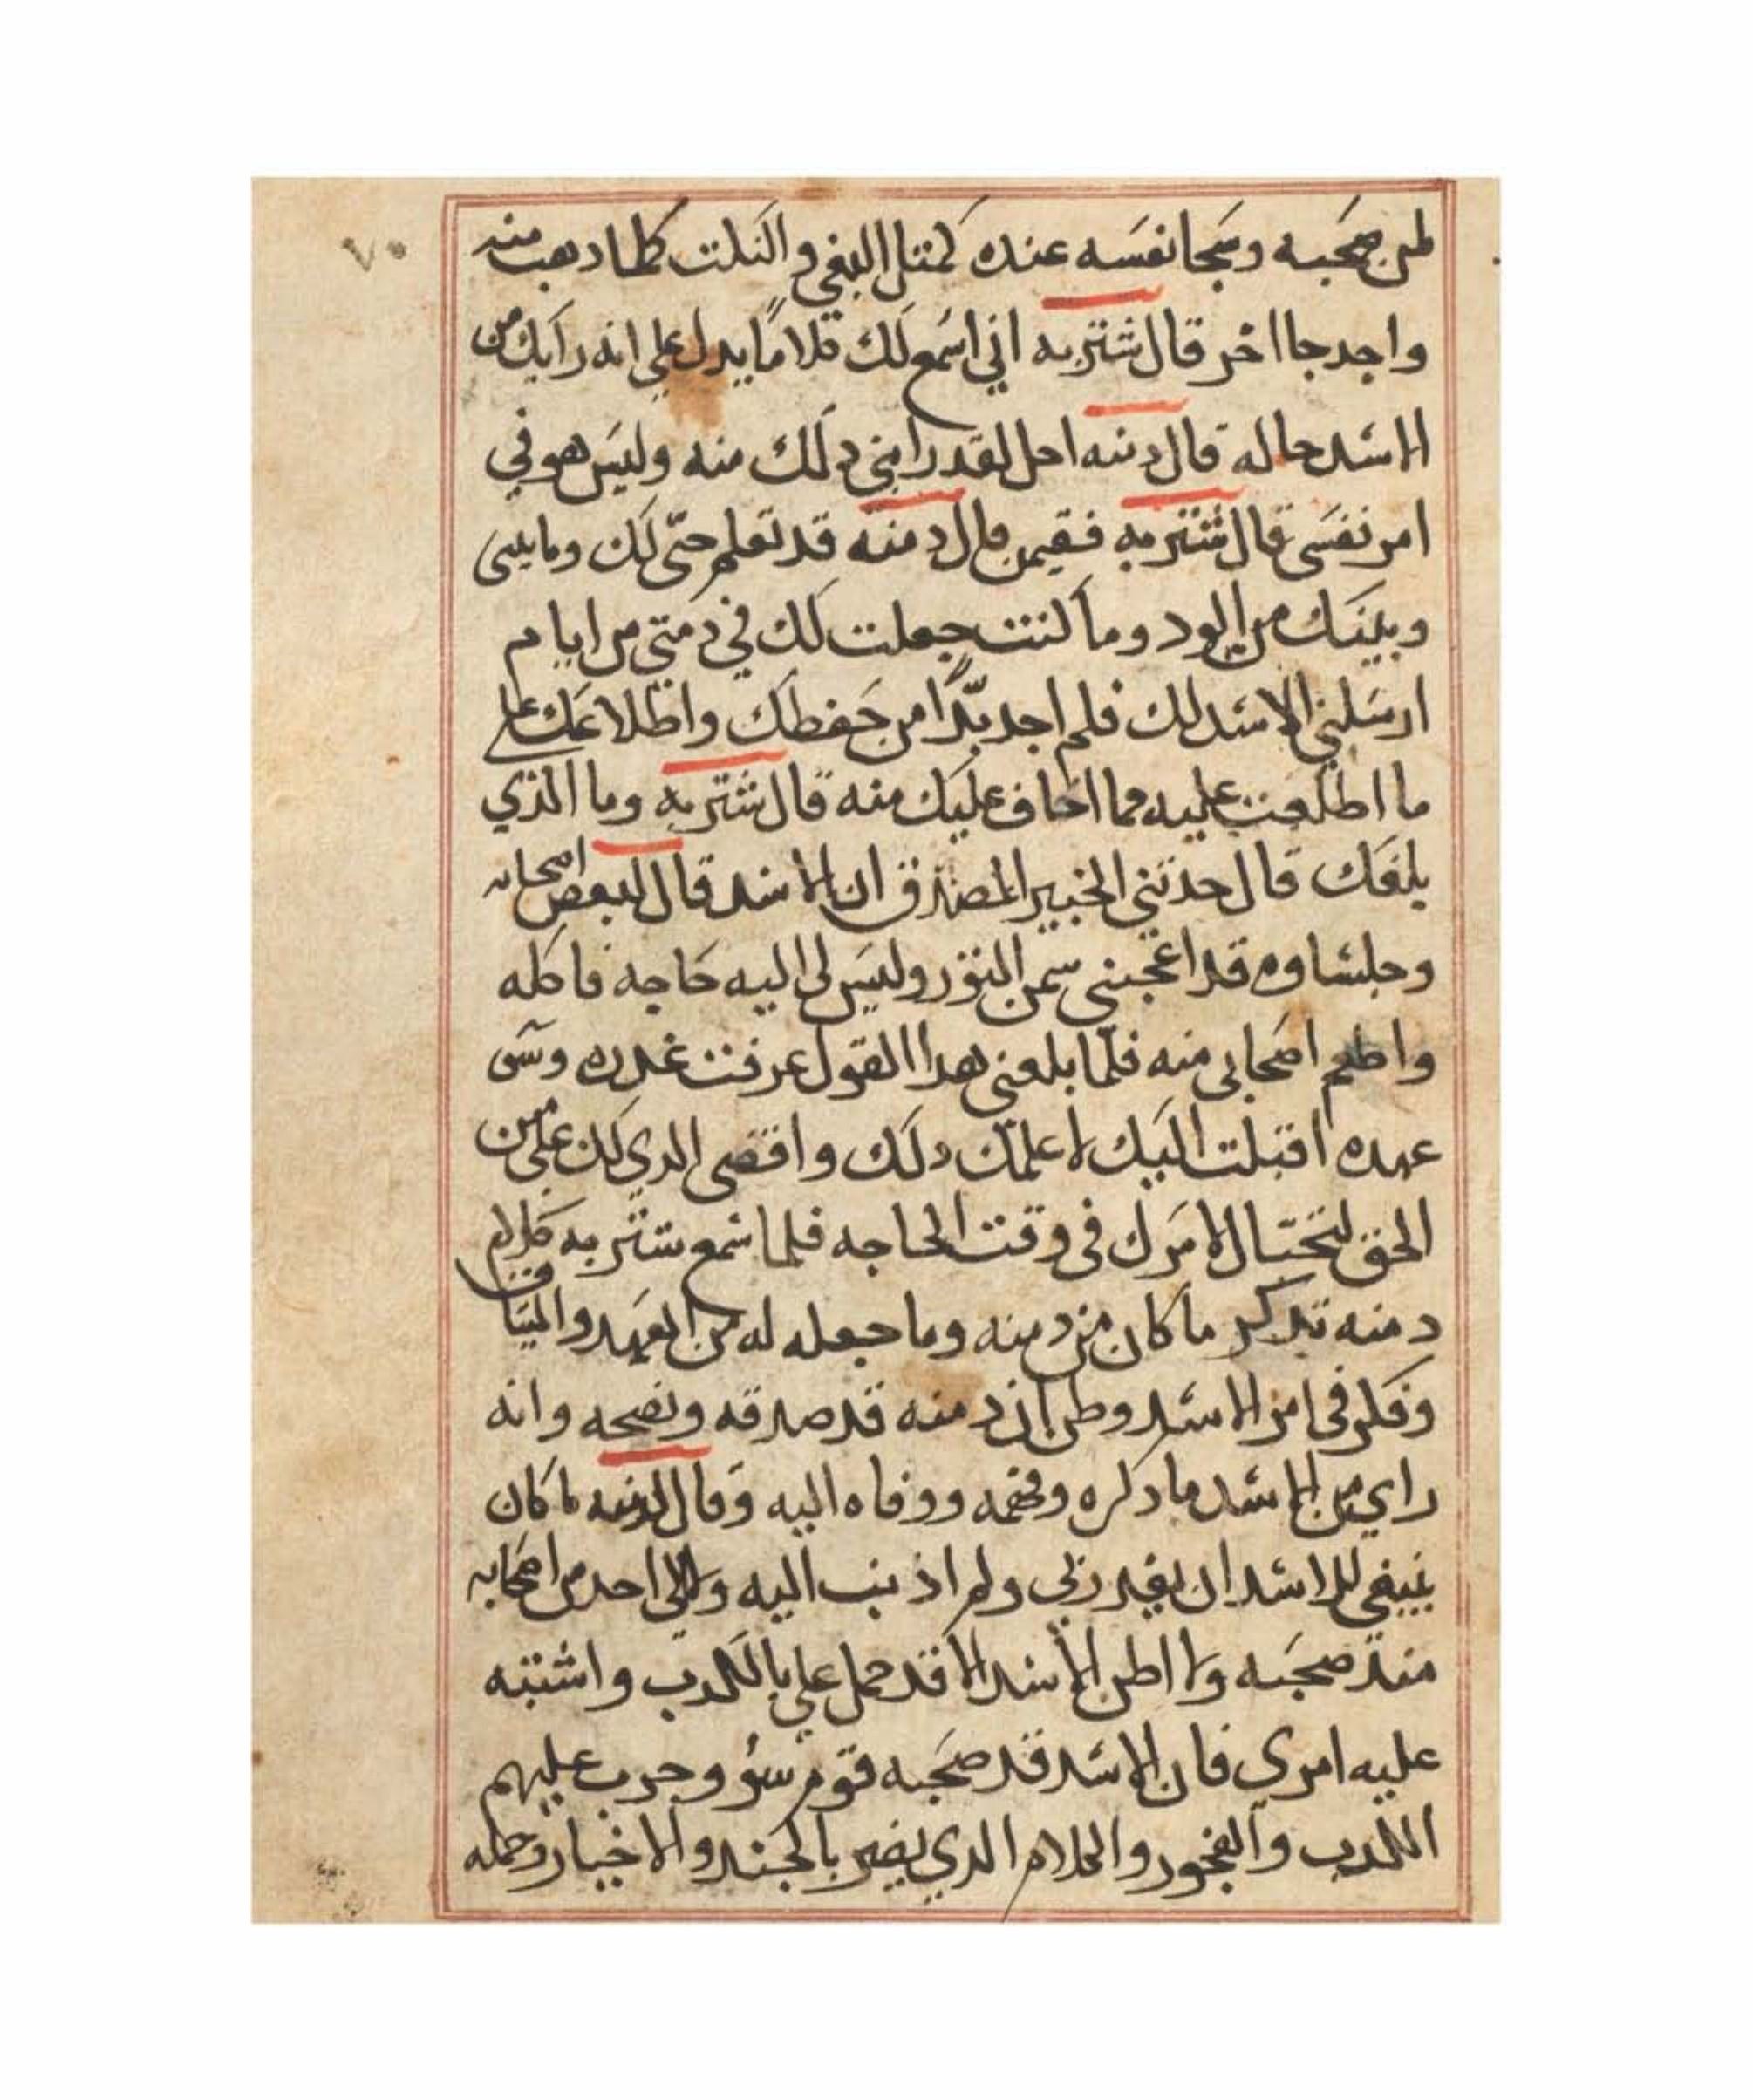 ٧٠
لمن صحبه وسخا نفسه عنده كمثل البغي والتلت كلما دهب منه
واحد جا اخر قال شتربه اني اسمع لك كلاما يدل علي انه رابك من
الاسد حاله قال دمنه اجل لقد رابني دلك منه وليس هو في
امر نفسى قال شتربه ففيمن قال دمنه قد تعلم حقك وما بينى
وبينك من الود وما كنت جعلت لك في دمتي من ايام
ارسلني الاسد لك فلم اجد بدًّا من حفطك واطلاعك علي
ما اطلعت عليه مما اخاف عليك منه قال شتربه وما الذي
بلغك قال حدثني الخبير المصدق ان الاسد قال لبعض اصحابه
وجلساوه قد اعجبنى سمن التور وليس لى اليه حاجه فاكله
واطعم اصحابى منه فلما بلغنى هدا القول عرفت غدره وسو
عهده اقبلت اليك لاعلمك دلك واقضى الدي لك علي من
الحق لتحتال لامرك فى وقت الحاجه فلما سمع شتربه كلام
دمنه تدكر ما كان من دمنه وما جعله له من العهد والميثاق
وفكر فى امر الاسد وطن ان دمنه قد صدقه ونصحه وانه
راي من الاسد ما دكره وفهمه ووفاه اليه وقال لدمنه ما كان
ينبغى للاسد ان يغدر بى ولم اذنب اليه ولا الى احد من اصحابه
منذ صحبه ولا اطن الاسد الا قد حمل علي بالكدب واشتبه
عليه امري فان الاسد قد صحبه قوم سوء وجرب عليهم
الكدب والفجور والكلام الدي يضر بالجند والاخيار وحمله